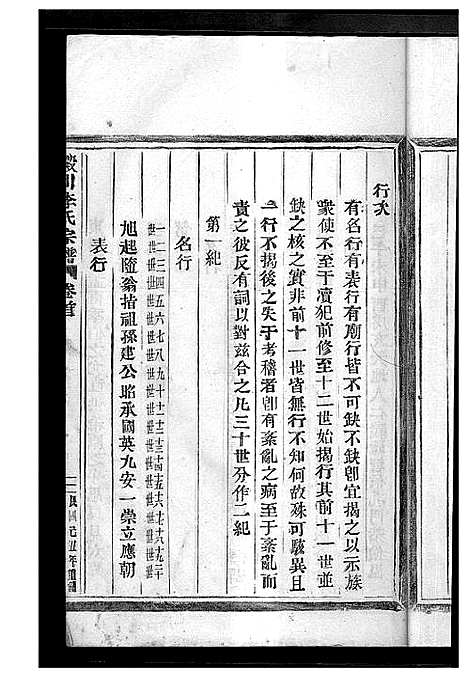 行次
有名行有表行有廟行皆不可缺不缺卽宜揭之以示族
衆使不至于瀆犯前修至十二世始揭行其前十一世並
缺之核之實非前十一世皆無行不知何故殊可駭異且
一行不揭後之失于考稽者卽有紊亂之病至于紊亂而
責之彼反有詞以對茲合之凡三十世分作二紀
第一紀
名行
一世 二世 三世 四世 五世 六世 七世 八世 九世 十世 十一世 十二世 十三世 十四世 十五世 十六世 十七世 十八世 十九世 二十世
旭起隨翁揩祖孫建公昭承國英九安一崇立應朝
表行
川李氏宗譜 卷首
民國元年重鐫